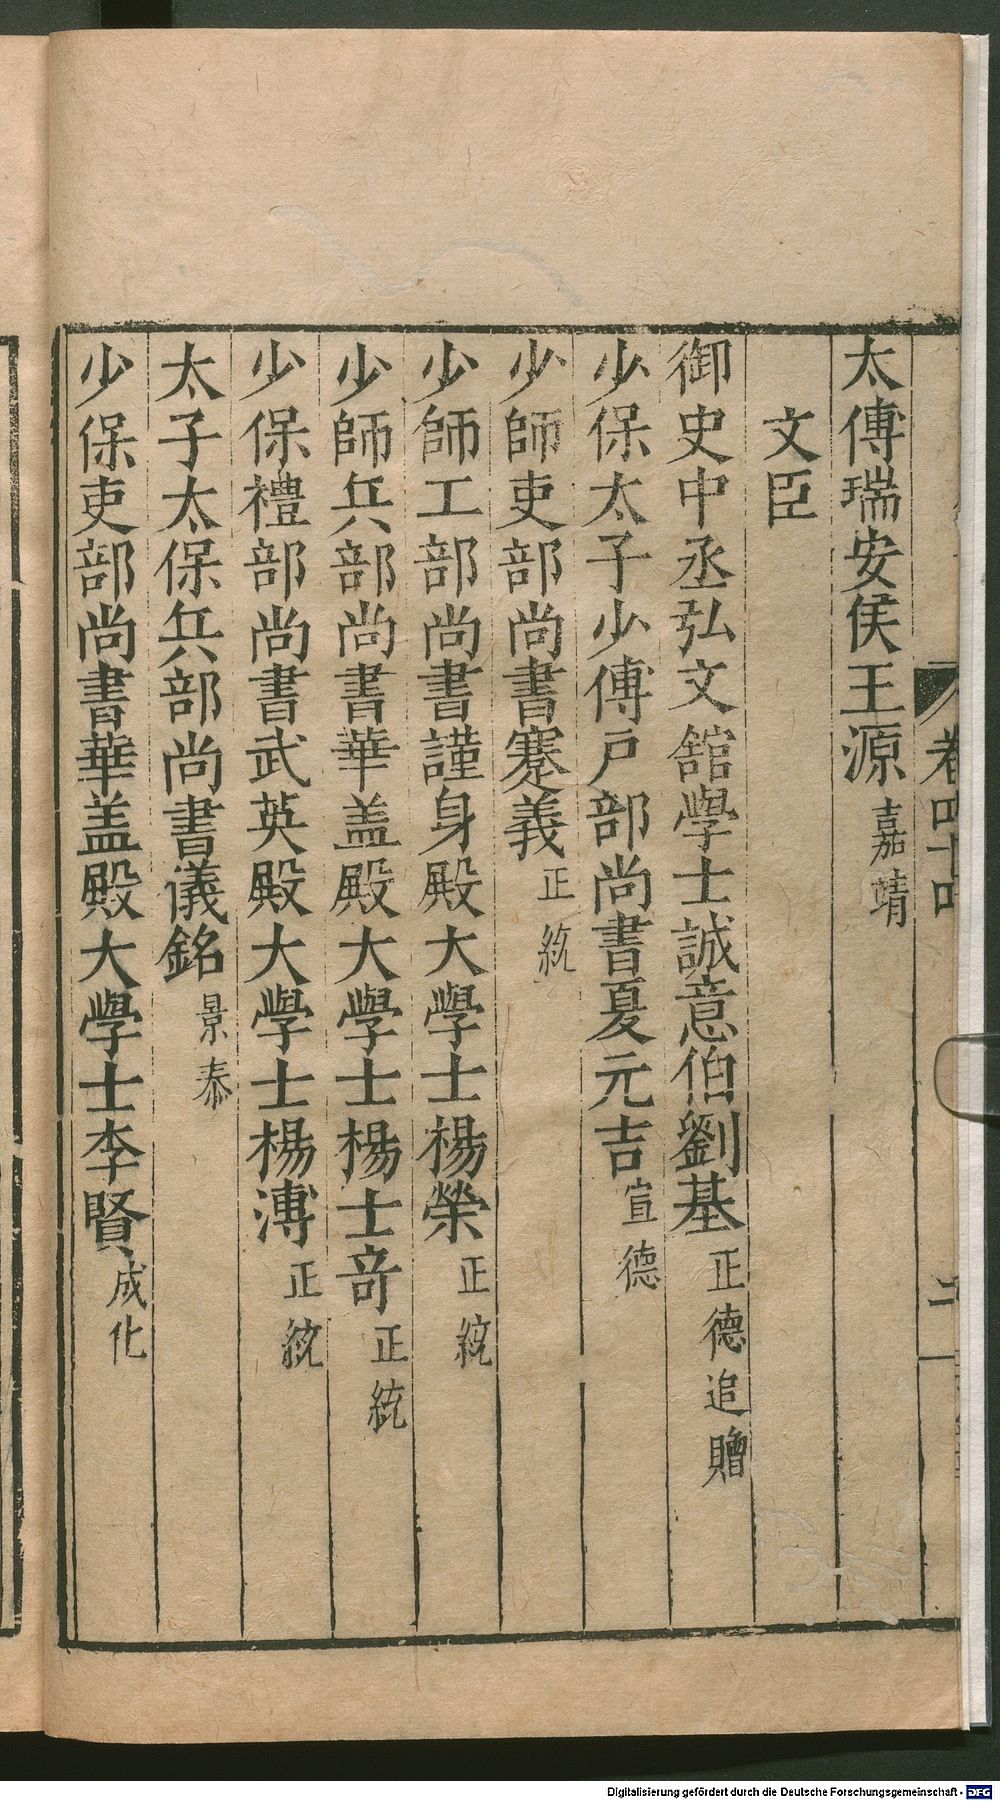 卷四十四
二
太傅瑞安侯王源嘉靖
文臣
御史中丞弘文舘學士誠意伯劉基正德追贈
少保太子少傅户部尚書夏元吉宣德
少師吏部尚書蹇義正統
少師工部尚書謹身殿大學士楊榮正統
少師兵部尚書華盖殿大學士楊士竒正統
少保禮部尚書武英殿大學士楊溥正統
太子太保兵部尚書儀銘景泰
少保吏部尚書華盖殿大學士李賢成化
Digitalisierung gefördert durch die Deutsche Forschungsgemeinschaft - DFG